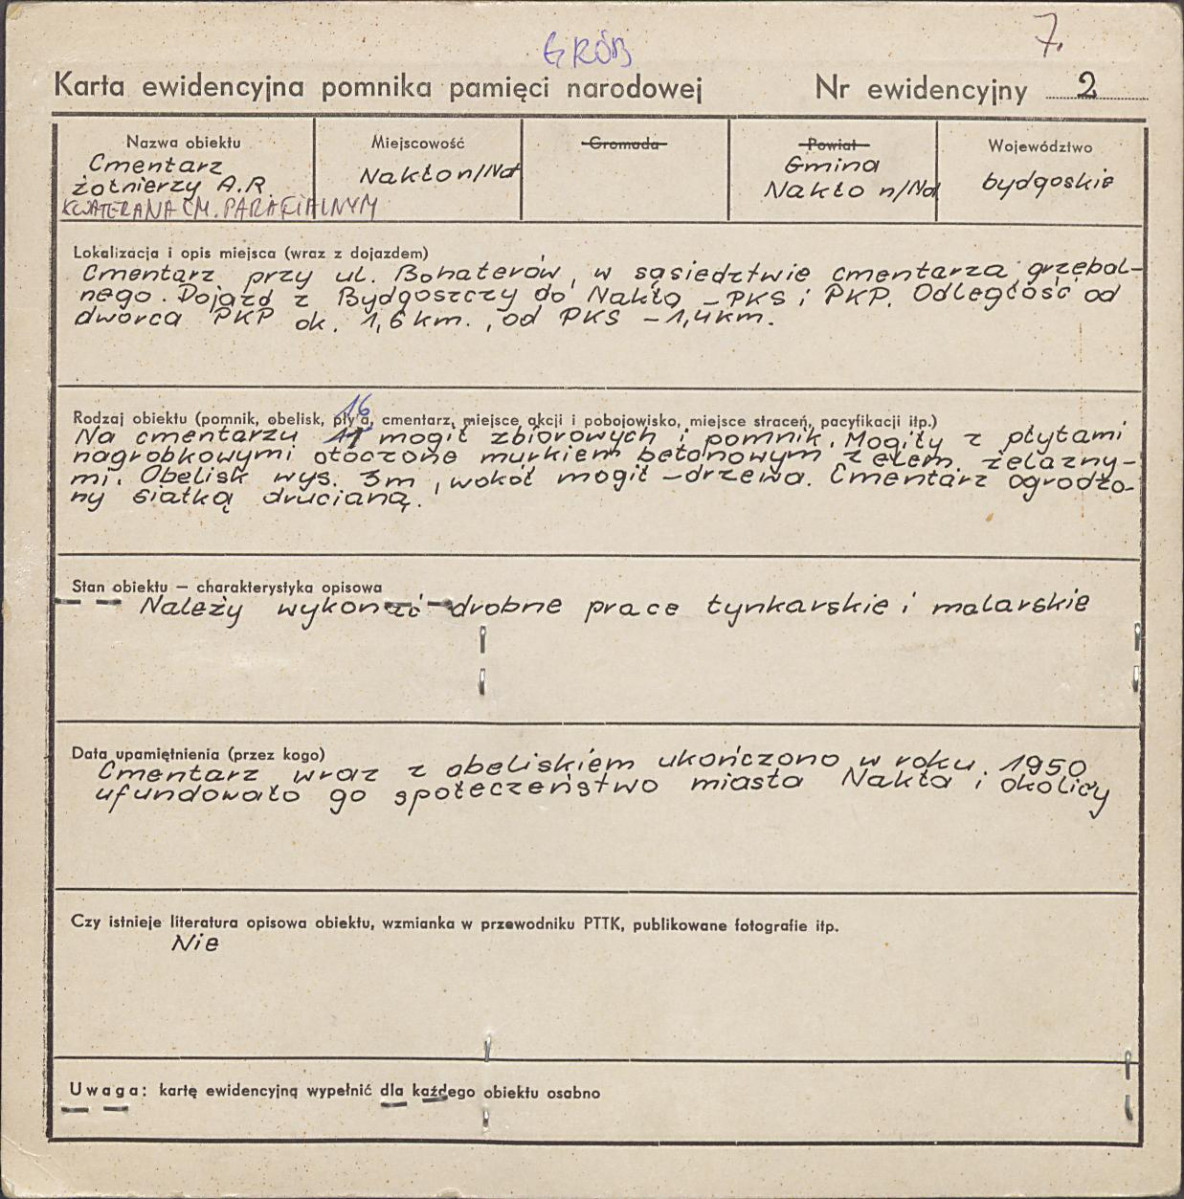 GRÓB
7.
Karta ewidencyjna pomnika pamięci narodowej Nr ewidencyjny 2
Nazwa obiektu
Cmentarz
żołnierzy A.R.
KWATERA NA CM. PARAFIALNYM
Miejscowość
Nakło n/Not
Gromada
Powiat
Gmina
Nakło n/Not
Województwo
bydgoskie
Lokalizacja i opis miejsca (wraz z dojazdem)
Cmentarz przy ul. Bohaterów, w sąsiedztwie cmentarza grzebal-
nego. Dojazd z Bydgoszczy do Nakła – PKS i PKP. Odległość od
dworca PKP ok. 1,6 km., od PKS – 1,4 km.
Rodzaj obiektu (pomnik, obelisk, płyta, cmentarz, miejsce akcji i pobojowisko, miejsce straceń, pacyfikacji itp.)
16
Na cmentarzu 11 mogił zbiorowych i pomnik. Mogiły z płytami
nagrobkowymi otoczone murkiem betonowym z elem. żelazny-
mi. Obelisk wys. 3m, wokół mogił – drzewa. Cmentarz ogrodzo-
ny siatką drucianą.
Stan obiektu — charakterystyka opisowa
Należy wykonać drobne prace tynkarskie i malarskie
Data upamiętnienia (przez kogo)
Cmentarz wraz z obeliskiem ukończono w roku 1950
ufundowało go społeczeństwo miasta Nakła i okolicy
Czy istnieje literatura opisowa obiektu, wzmianka w przewodniku PTTK, publikowane fotografie itp.
Nie
Uwaga: kartę ewidencyjną wypełnić dla każdego obiektu osobno